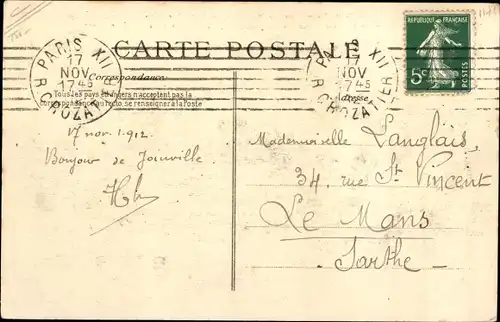 CARTE POSTALE
Correspondance
Tous les pays étrangers n'acceptent pas la
correspondance au recto, se renseigner à la Poste
Adresse
PARIS XII
17
NOV
17 45
R. CROZATIER
PARIS XII
17
NOV
17 45
R. CROZATIER
REPUBLIQUE FRANÇAISE
5c
POSTES
17 nov. 1912
Bonjour de Joinville
Mademoiselle Langlais
34, rue St Vincent
Le Mans
Sarthe